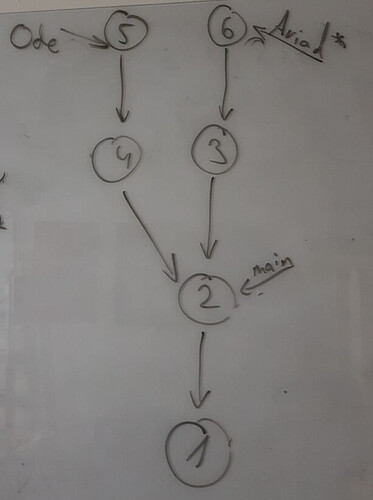 Ode 5 6 Aviad*
4 3
2 main
1